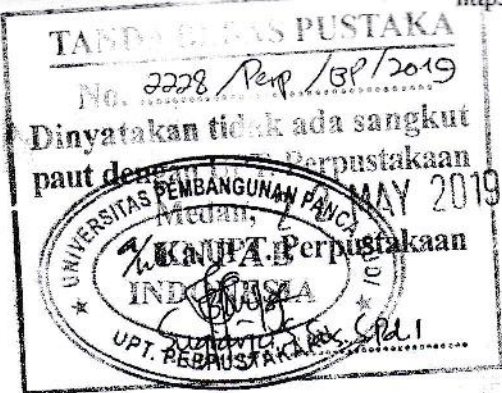 TANDA BEBAS PUSTAKA
No. 2228/Perp/BP/2019
Dinyatakan tidak ada sangkut
paut dengan UPT. Perpustakaan
Medan, MAY 2019
Ka. UPT. Perpustakaan
UNIVERSITAS PEMBANGUNAN PANCA BUDI
UNPAB
INDONESIA
UPT. PERPUSTAKAAN
S.Pd.I